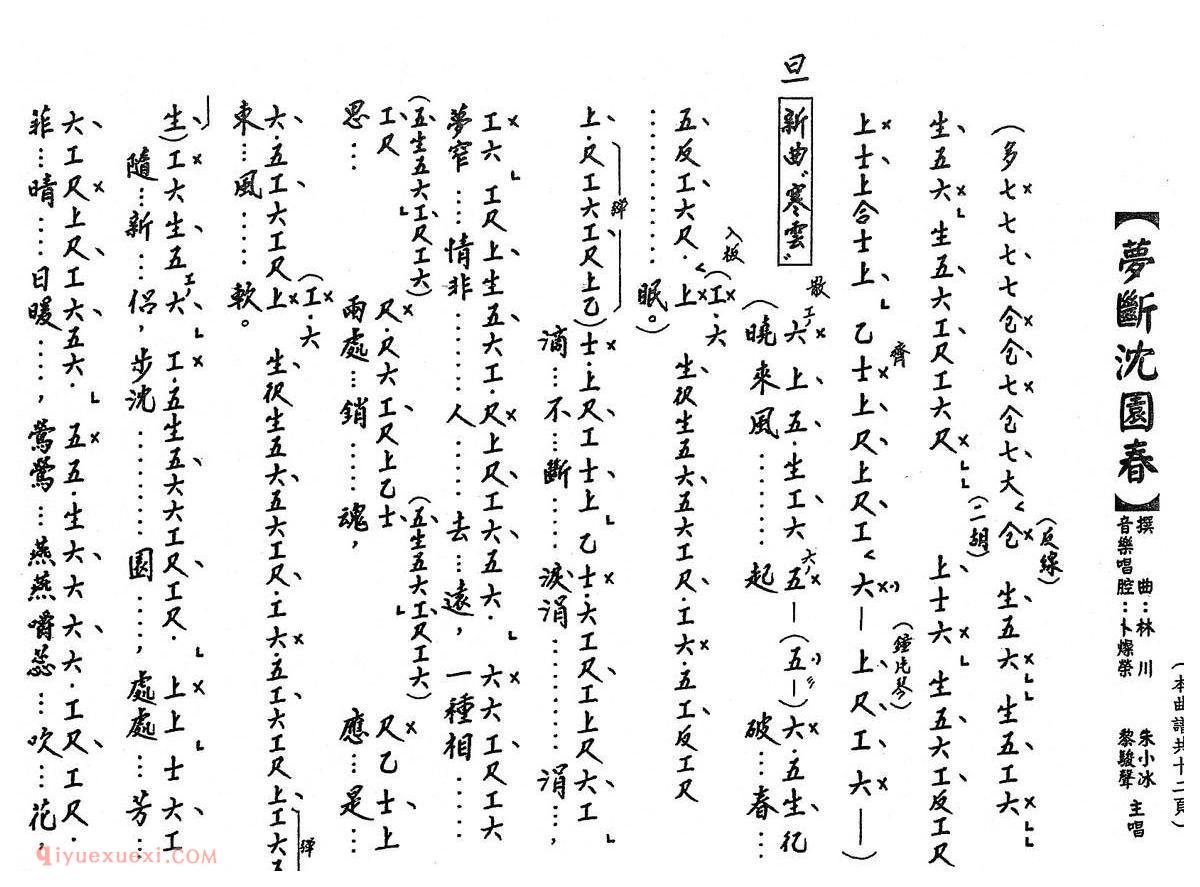 （本曲譜共十二頁）
【夢斷沈園春】
撰曲：林川　朱小冰
音樂唱腔：卜燦榮　黎駿聲　主唱
（反線）
（多七七七七仓仓七仓七大仓　生五六　生五工六
（二胡）
生五六　生五六工尺工六尺　上士六　生五六工反工尺
齊　（鐘片琴）
上士上合士上　乙士上尺上尺工　六—上尺工六—）
旦　新曲"寒雲"　散　工六上五．生工六　六五—（五—）六．五生
（曉來風……起　破…春…
入板
五反工六尺．上（工．六　生伬生五六五六工尺．工六．五工反工尺
………眠。）
彈
上．尺工六工尺上乙）士．上尺工士上　乙士．六工尺工上尺六工
滴…不…斷………淚涓………涓…，
工六　工尺上生五六工．尺上尺工六五六．　六六工尺工六
夢窄…情非………人…去…遠，一種相……
（五生五六工尺工六）　（五生五六工尺工六）
工尺　尺．尺六工尺上乙士　尺乙士上
思…　兩處…銷……魂，　應…是…
（工．六
六．五工六工尺上　生伬生五六五六工尺．工六．五工六工尺上工六五
東…風……軟。
彈
生）工六生五工六　工．五生五六六工尺工尺．　上上士六工
隨…新…侶，步沈………園……，處處…芳…
六工尺上尺工六五六．　五五．生六六六六．工尺工尺．
菲…晴……日暖……，鶯鶯…燕燕嚼蕊…吹…花，
qiyuexuexi.COM